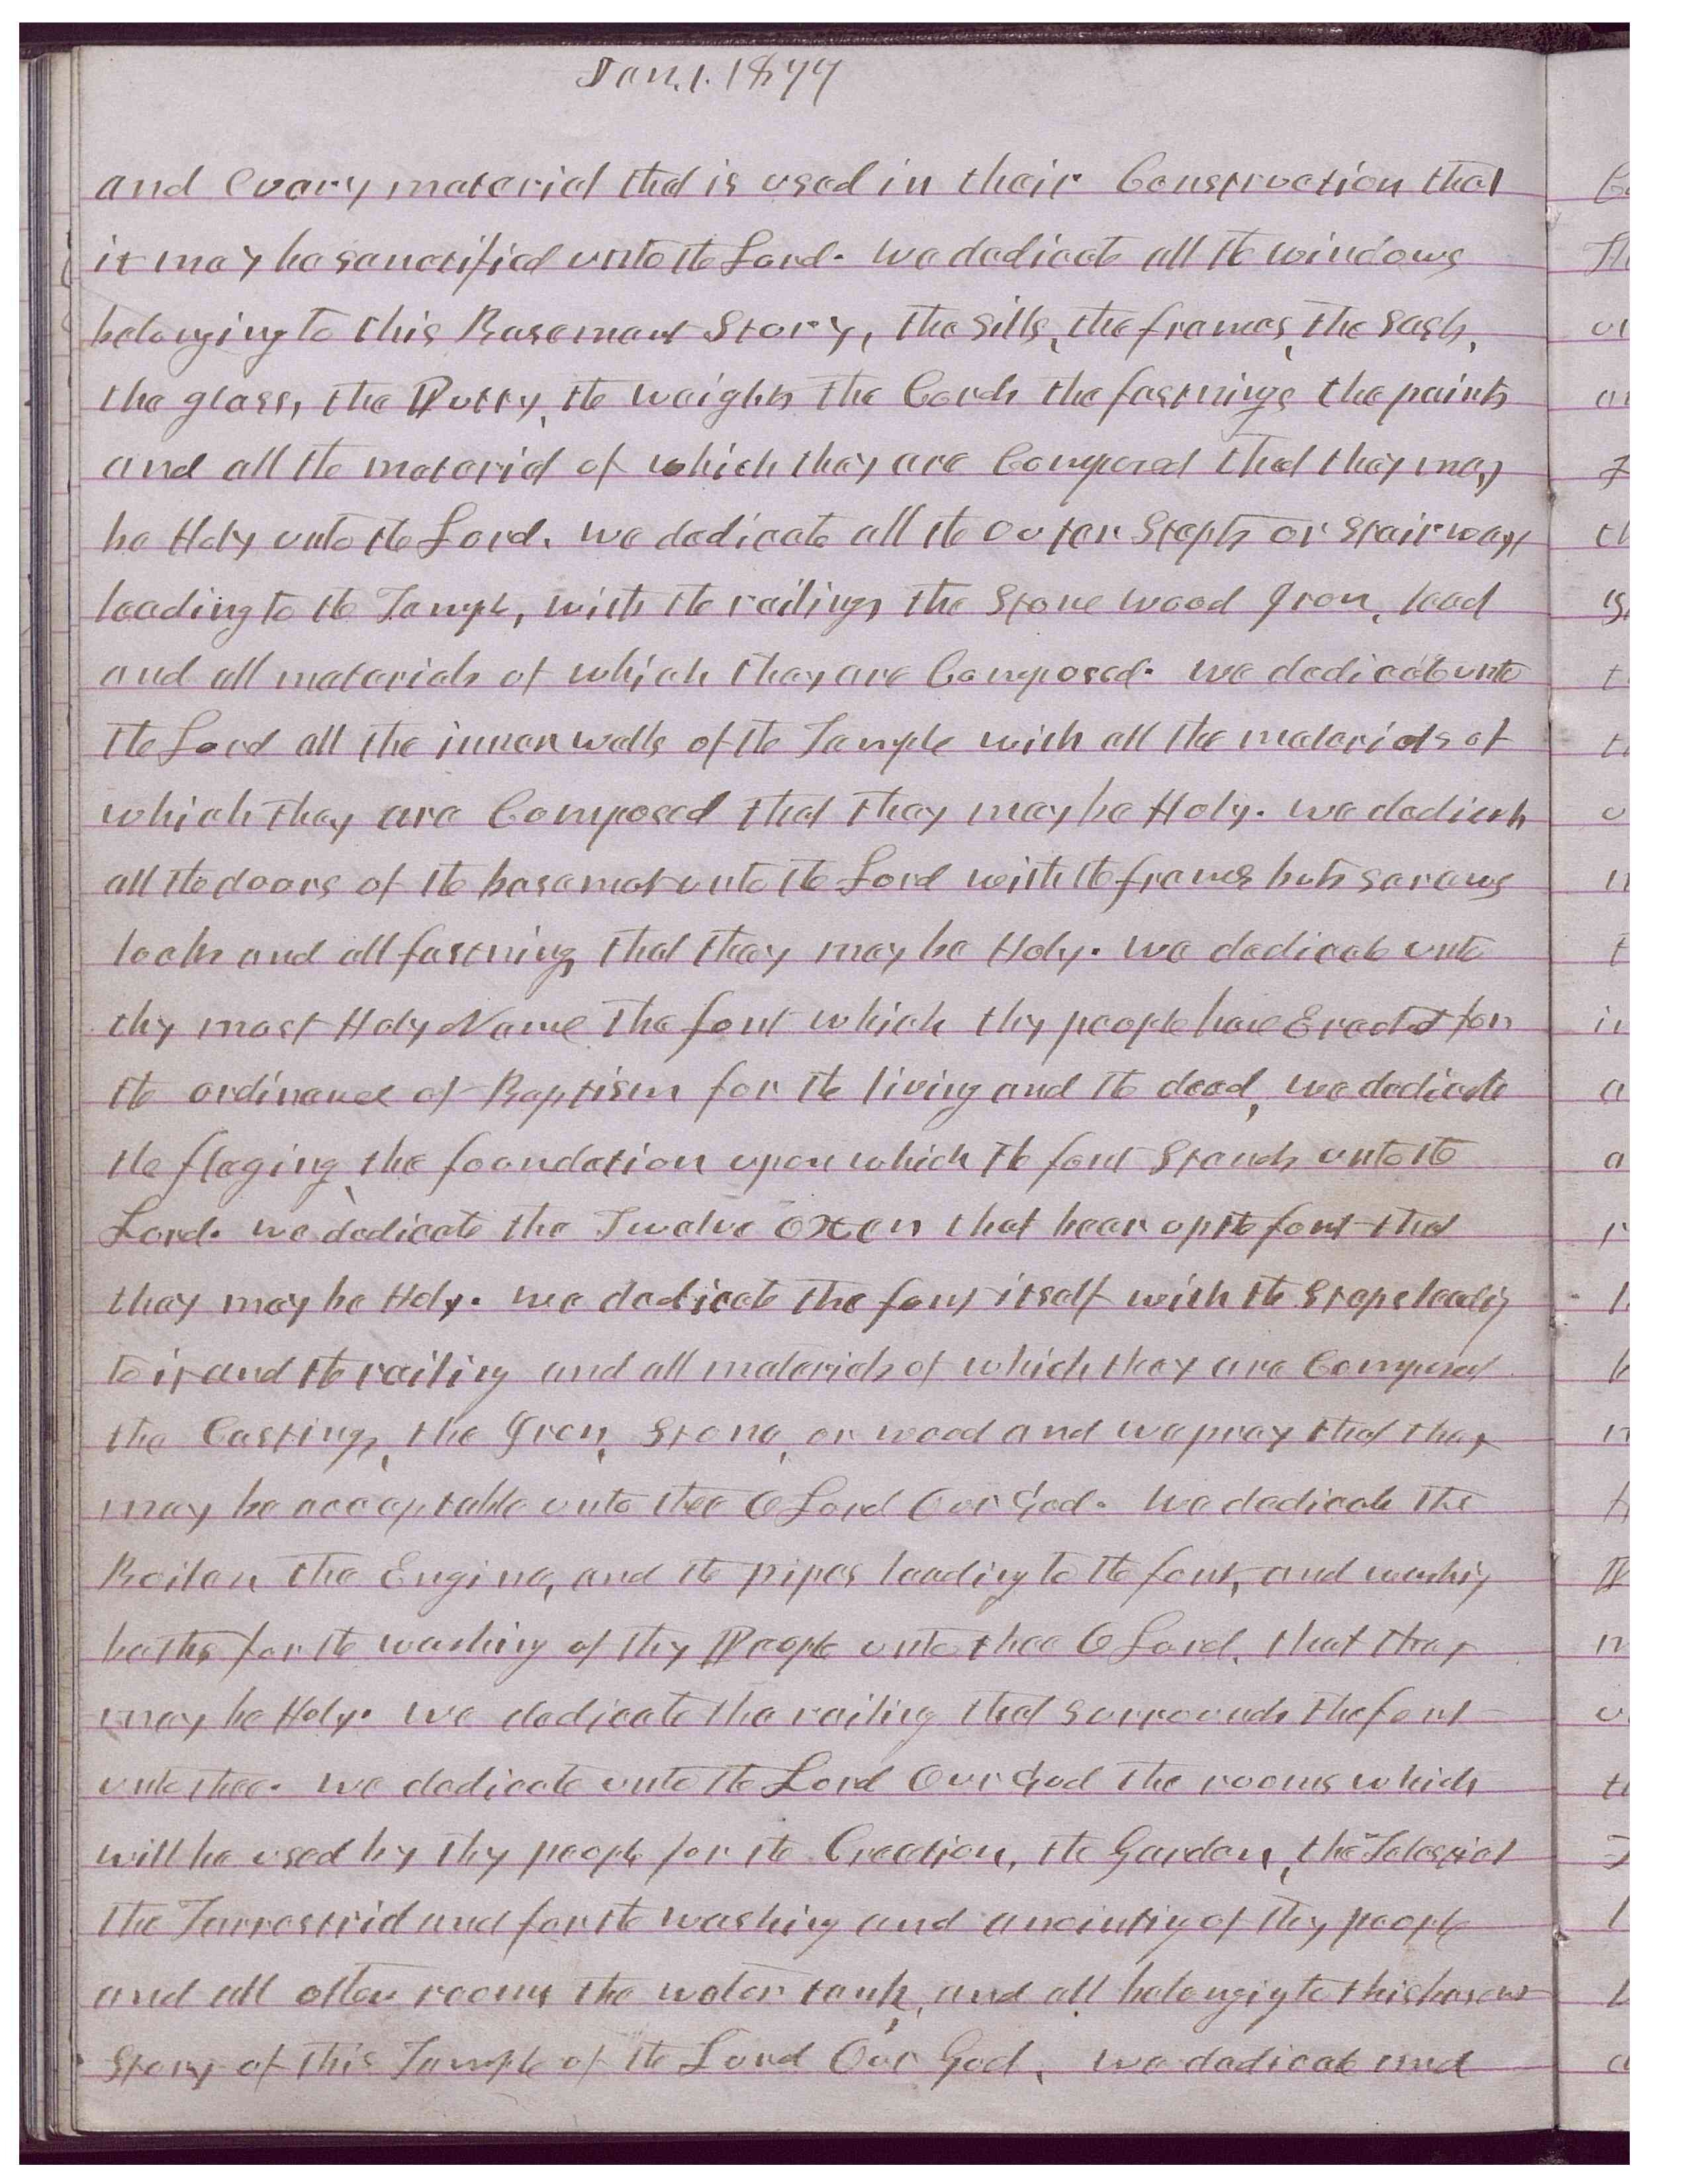 Jan. 1. 1877
and Every material that is used in their Construction that
it may be sanctified unto the Lord. we dedicate all the windows
belonging to this Basement Story, the sills, the frames, the sash,
the glass, the Putty, the weights the Cords the fastnings the paints
and all the material of which they are Composed that they may
be Holy unto the Lord. we dedicate all the outer Steps or Stairways
leading to the Temple, with the railings the Stone wood Iron, lead
and all materials of which they are Composed. we dedicate unto
the Lord all the inner walls of the Temple with all the materials of
which they are Composed that they may be Holy. we dedicate
all the doors of the basement unto the Lord with the frames buts screws
locks and all fastning that they may be Holy. we dedicate unto
thy most Holy Name the font which thy people have Erected for
the ordinance of Baptism for the living and the dead, we dedicate
the flaging, the foundation upon which the font Stands unto the
Lord. we dedicate the Twelve Oxen that bear up the font that
they may be Holy. we dedicate the font itself with the Steps leading
to it and the railing and all materials of which they are Composed
the Casting, the Iron, Stone, or wood and we pray that they
may be acceptable unto thee O Lord Our God. We dedicate the
Boiler, the Engine, and the pipes leading to the font, and washing
baths for the washing of thy People unto thee O Lord, that they
may be Holy. we dedicate the railing that surrounds the font
unto thee. we dedicate unto the Lord Our God the rooms which
will be used by thy people for the Creation, the Garden, the Telestial
the Terrestrial and for the washing and anointing of thy people
and all other rooms the water tank, and all belonging to this basemet
Story of this Temple of the Lord Our God, we dedicate and